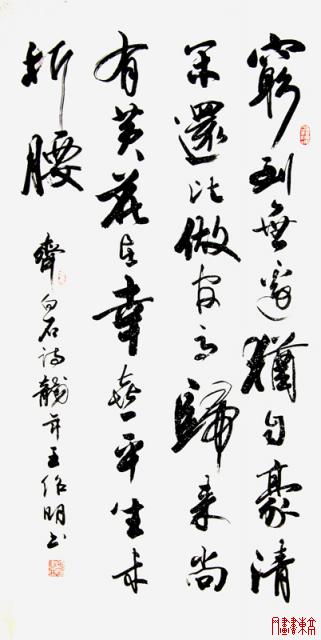 窮到無邊猶自豪清
闲還比做官高歸来尚
有黄花在幸喜平生未
折腰
齊白石诗龍年王作明书